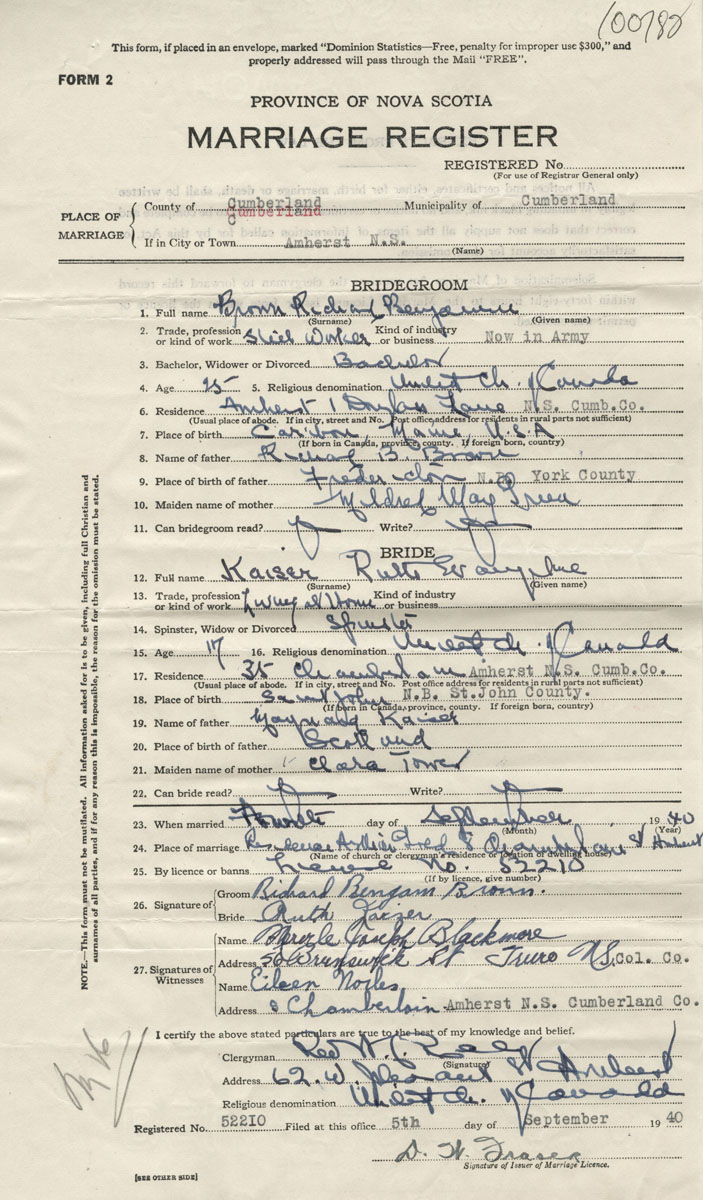 100782
This form, if placed in an envelope, marked "Dominion Statistics—Free, penalty for improper use $300," and
properly addressed will pass through the Mail "FREE".
FORM 2
PROVINCE OF NOVA SCOTIA
MARRIAGE REGISTER
REGISTERED No.
(For use of Registrar General only)
PLACE OF MARRIAGE
County of Cumberland Municipality of Cumberland
Cumberland
If in City or Town Amherst N.S.
(Name)
BRIDEGROOM
1. Full name Brown Richard Benjamin
(Surname) (Given name)
2. Trade, profession or kind of work Steel Worker Kind of industry or business Now in Army
3. Bachelor, Widower or Divorced Bachelor
4. Age 25 5. Religious denomination United Ch. of Canada
6. Residence Amherst 1 Lane N.S. Cumb.Co.
(Usual place of abode. If in city, street and No. Post office address for residents in rural parts not sufficient)
7. Place of birth Caribou, Maine U.S.A
(If born in Canada, province, county. If foreign born, country)
8. Name of father Richard B. Brown
9. Place of birth of father Fredericton N.B. York County
10. Maiden name of mother Mildred May
11. Can bridegroom read? Write?
BRIDE
12. Full name Kaiser Ruth Evangeline
(Surname) (Given name)
13. Trade, profession or kind of work Living at Home Kind of industry or business
14. Spinster, Widow or Divorced Spinster
15. Age 17 16. Religious denomination United Ch. of Canada
17. Residence 35 Chamberlain Amherst N.S. Cumb.Co.
(Usual place of abode. If in city, street and No. Post office address for residents in rural parts not sufficient)
18. Place of birth Saint John N.B. St.John County.
(If born in Canada, province, county. If foreign born, country)
19. Name of father Maynard Kaiser
20. Place of birth of father Scotland
21. Maiden name of mother Clara Tower
22. Can bride read? Write?
23. When married Fourth day of September 1940
(Month) (Year)
24. Place of marriage Residence Chamberlain St Amherst
(Name of church or clergyman's residence or location of dwelling house)
25. By licence or banns License No. 52210
(If by licence, give number)
26. Signature of
Groom Richard Benjam Brown.
Bride Ruth Kaizer
27. Signatures of Witnesses
Name Merle Joseph Blackmore
Address 50 Brunswick St Truro N.S. Col. Co.
Name Eileen Noiles
Address 8 Chamberlain Amherst N.S. Cumberland Co.
I certify the above stated particulars are true to the best of my knowledge and belief.
Clergyman Rev W.
(Signature)
Address 62 W. Pleasant St Amherst
Religious denomination United Ch. of Canada
Registered No. 52210 Filed at this office 5th day of September 1940
D. W. Fraser
Signature of Issuer of Marriage Licence.
[SEE OTHER SIDE]
NOTE—This form must not be mutilated. All information asked for is to be given, including full Christian and
surnames of all parties, and if for any reason this is impossible, the reason for the omission must be stated.